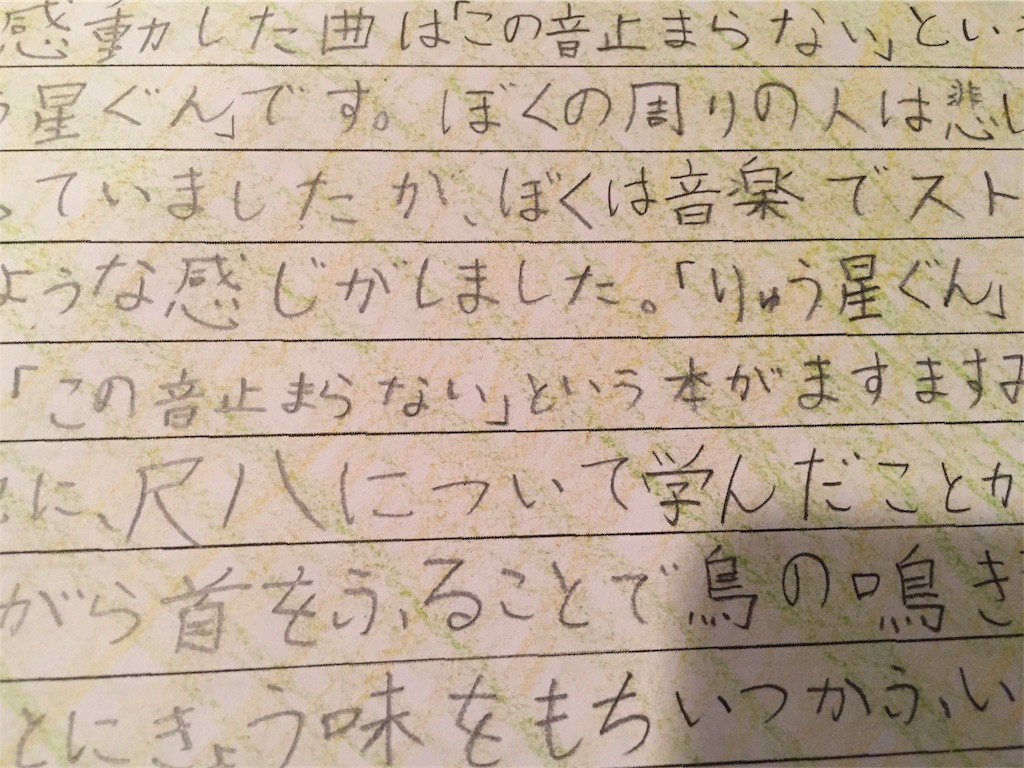 感動した曲は「この音止まらない」とい
星ぐん」です。ぼくの周りの人は悲し
ていましたが、ぼくは音楽でスト
ような感じがしました。「りゅう星ぐん」
「この音止まらない」という本がますます
に、尺八について学んだことか
がら首をふることで鳥の鳴き
とにきょう味をもちいつかふい